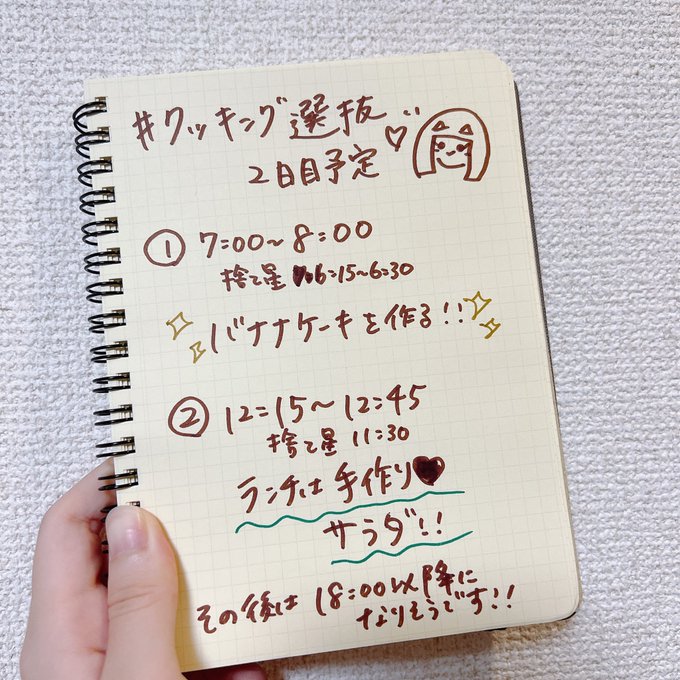 #クッキング選抜
2日目予定♡
① 7:00〜8:00
捨て星 6:15〜6:30
バナナケーキを作る!!
② 12:15〜12:45
捨て星 11:30
ランチは手作り♥
サラダ!!
その後は18:00以降に
なりそうです!!